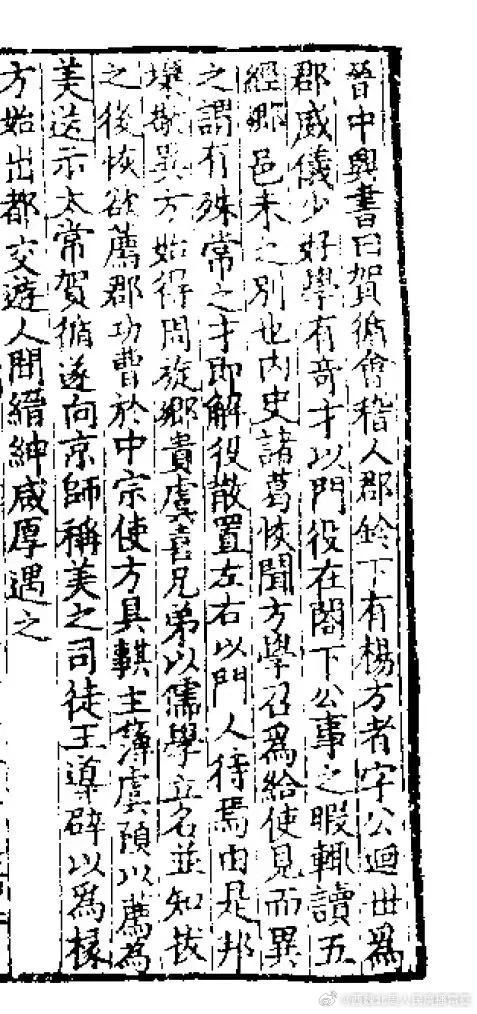 晉中興書曰賀循會稽人郡鈴下有楊方者字公迴世爲
郡威儀少好學有奇才以門役在閤下公事之暇輒讀五
經鄉邑未之別也內史諸葛恢聞方學召爲給使見而異
之謂有殊常之才即解役散置左右以門人待焉由是邦
壤歎異方始得周旋鄉貴虞喜兄弟以儒學立名並知拔
之後恢欲薦郡功曹於中宗使方具䡖主薄虞預以薦爲
美送示太常賀循遂向京師稱美之司徒王導辟以爲椽
方始出都交遊人間縉紳咸厚遇之